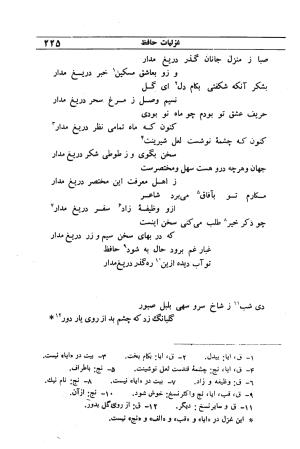 غزلیات حافظ ۲۲۵
صبا ز منزل جانان گذر دریغ مدار
و زو بعاشق مسکین۱ خبر دریغ مدار
بشکر آنکه شکفتی بکام دل۲ ای گل
نسیم وصل ز مرغ سحر دریغ مدار
حریف عشق تو بودم چو ماه نو بودی
کنون که ماه تمامی نظر دریغ مدار۳
کنون که چشمهٔ نوشست لعل شیرینت۴
سخن بگوی و ز طوطی شکر دریغ مدار
جهان وهرچه درو هست سهل ومختصرست
ز اهل معرفت این مختصر دریغ مدار
مکارم تو بآفاق۵ می‌برد شاعر
ازو وظیفهٔ زاد۶ سفر دریغ مدار۷
چو ذکر خیر۸ طلب می‌کنی سخن اینست
که در بهای سخن سیم و زر دریغ مدار
غبار غم برود حال به شود۹ حافظ
تو آب دیده ازین۱۰ رهگذر دریغ‌مدار
دی شب۱۱ ز شاخ سرو سهی بلبل صبور
گلبانگ زد که چشم بد از روی یار دور۱۲*
۱- ق، ایا: بیدل. ۲- ق، ایا: بکام بخت. ۳- بیت در «ایا» نیست.
۴- ق، ایا، نج: چشمهٔ قندست لعل نوشینت. ۵- نج: باطراف.
۶- ق: وظیفه و زاد. ۷- بیت در «ایا» نیست. ۸- نج: نام نیک.
۹- ق، قب، ایا، نج واکثرنسخ: خوش شود. ۱۰- نج: ازآن.
۱۱- ق و سایرنسخ: دیگر. ۱۲- ق: از روی گل بدور.
* این غزل در «ایا» و «قب» و «الف» و «نج» نیست.